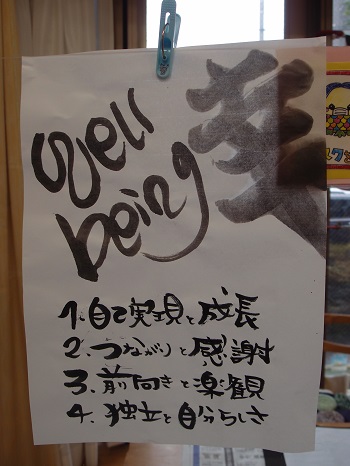 well
being
幸
1.自己実現と成長
2.つながりと感謝
3.前向きと楽観
4.独立と自分らしさ